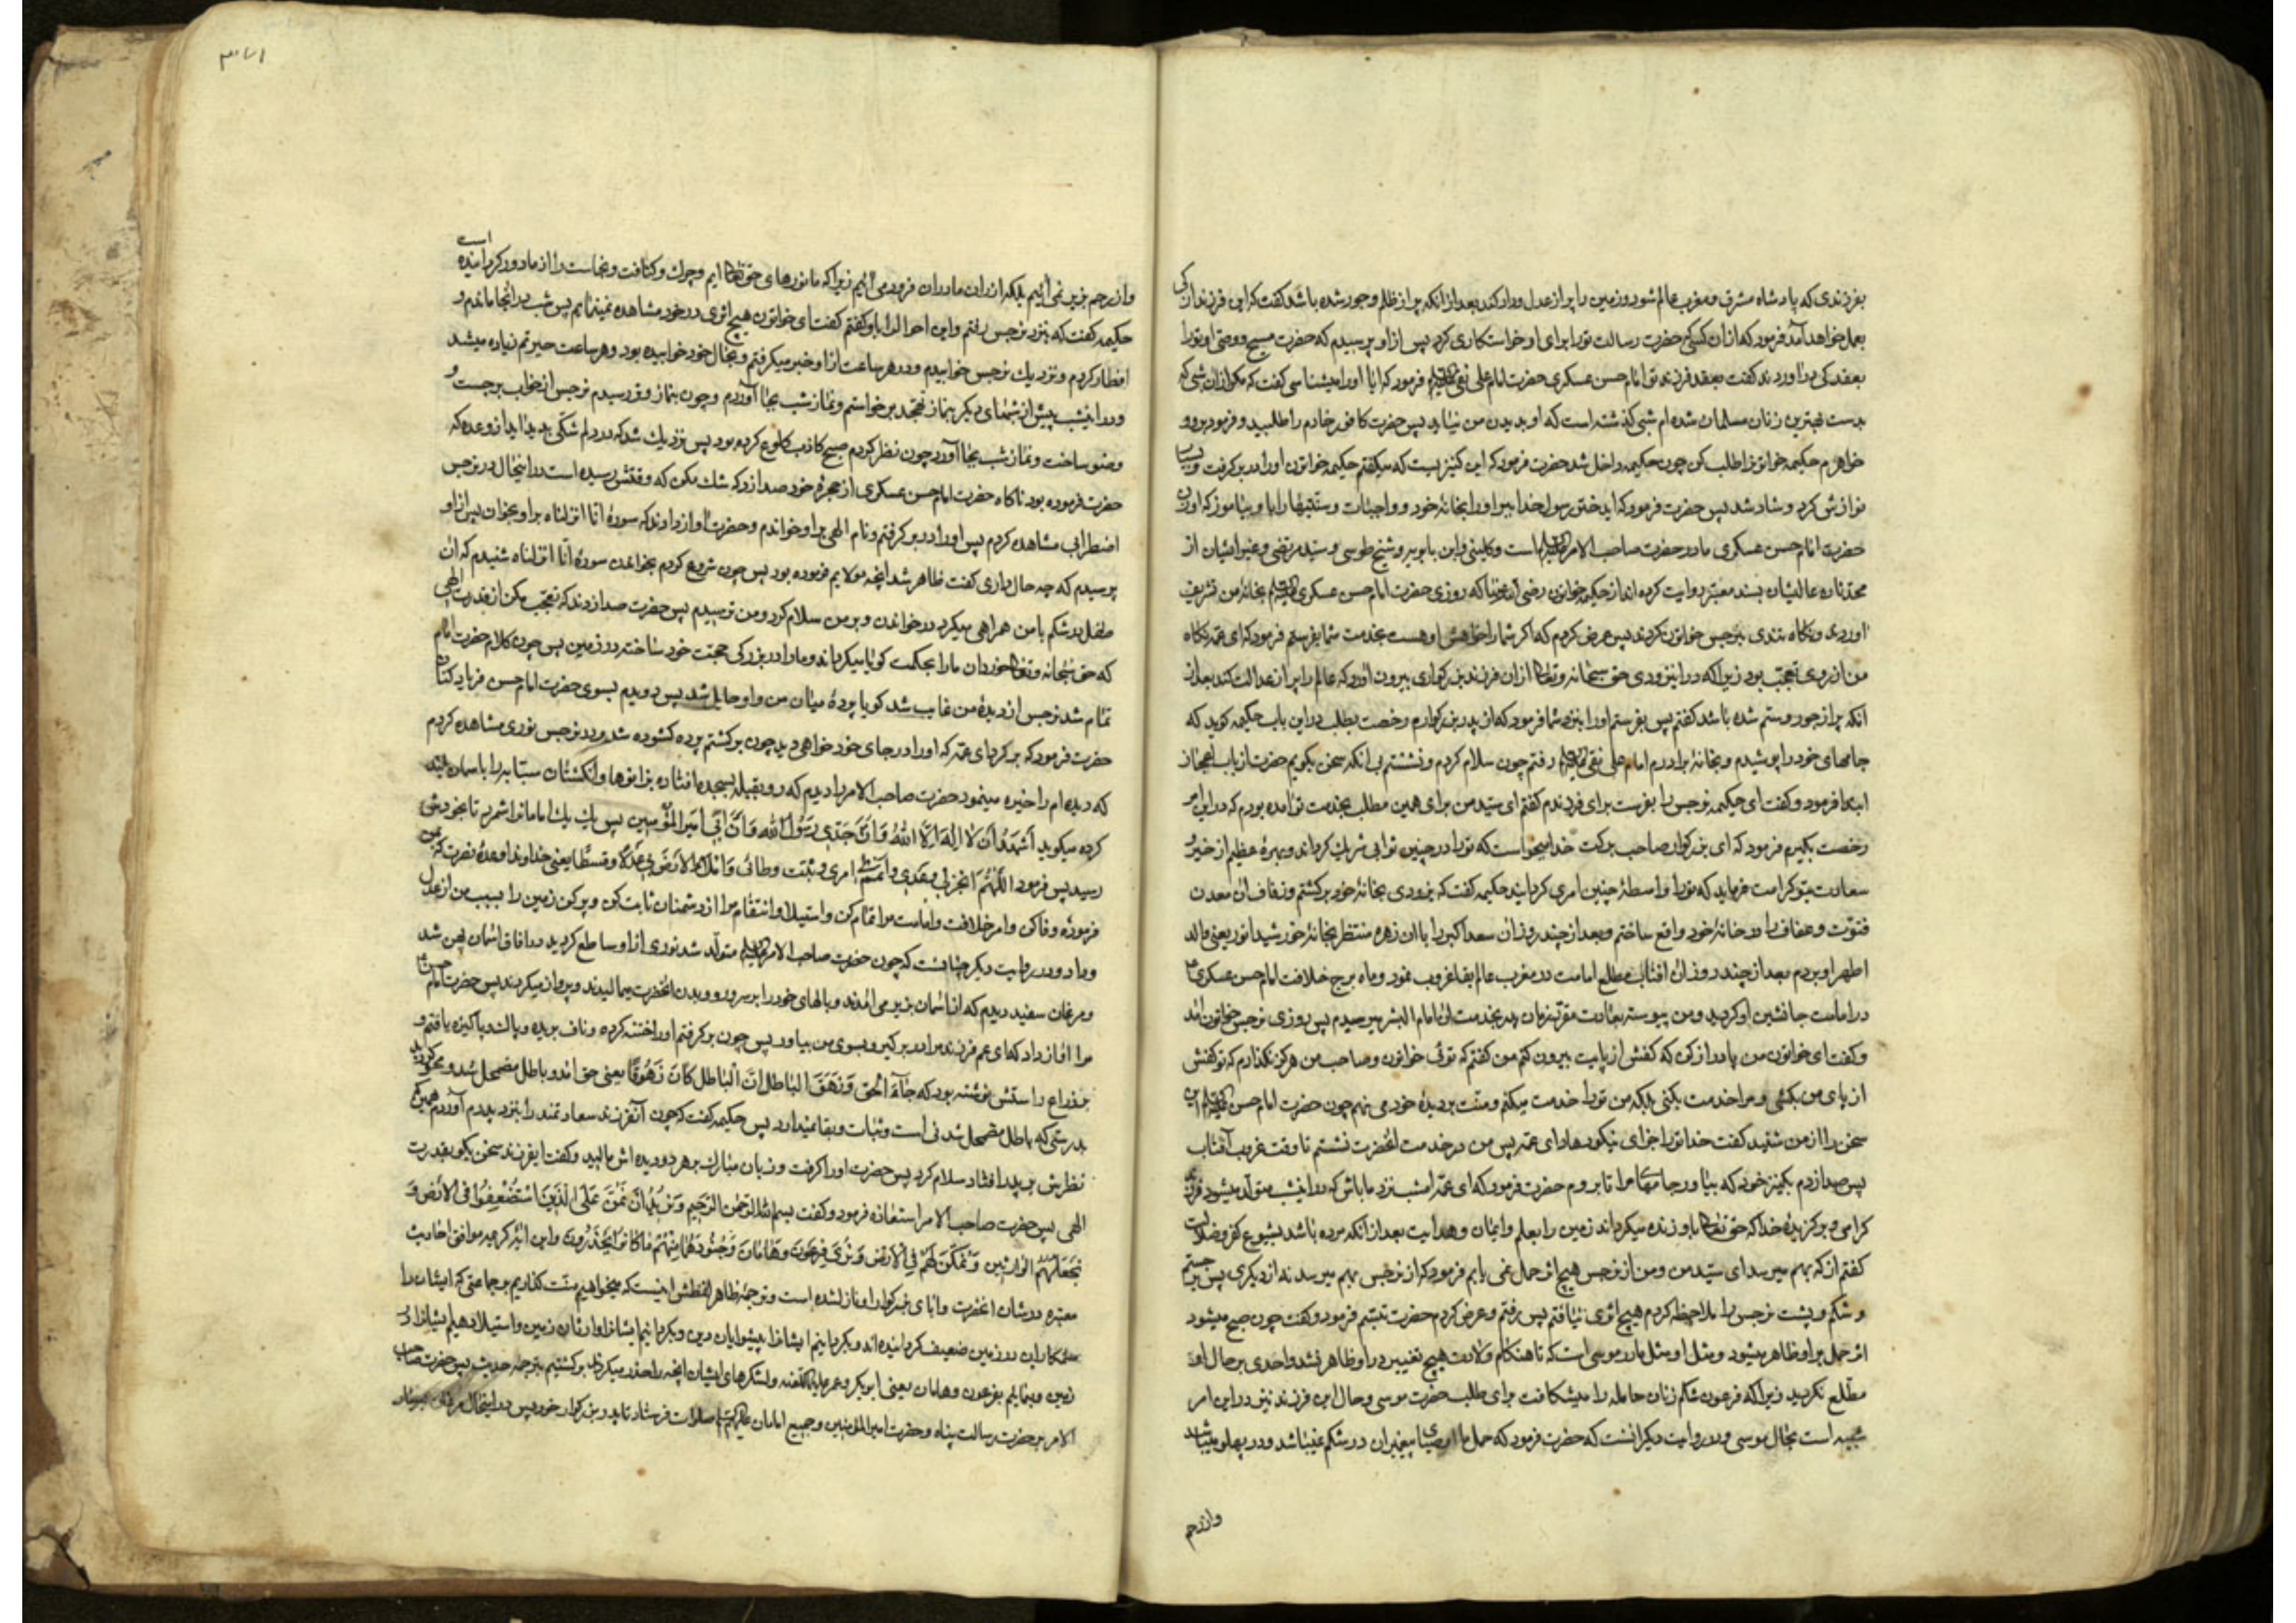 بفرزندی که پادشاه مشرق و مغرب عالم شود و زمین را پر از عدل و داد کند بعد از آنکه پر از ظلم و جور شده باشد گفت که این فرزند از کی
بعمل خواهد آمد فرمود که از آن کسی که حضرت رسالت تو را برای او خواستکاری کرد پس از او پرسیدم که حضرت مسیح و وصی او تو را
بعقد کی در اوردند گفت بعقد فرزند تو امام حسن عسکری حضرت امام علی نقی فرمود که ایا او را میشناسی گفت که مکر از ان شبی که
بدست بهترین زنان مسلمان شده ام شبی کذشته است که او بدیدن من نیاید پس حضرت کافور خادم را طلبید و فرمود برو و
خواهرم حکیمه خاتونرا طلب کن چون حکیمه داخل شد حضرت فرمود که این کنیز یست که میکفتم حکیمه خاتون او را در بر گرفت و بسیار
نوازش کرد و شاد شد پس حضرت فرمود که ایدختر رسول خدا ببر او را بخانۀ خود و واجبات و سنتیها را باو بیاموز که او زن
حضرت امام حسن عسکری و مادر حضرت صاحب الامر است و کلینی و ابن بابویه و شیخ طوسی و سید مرتضی و غیر ایشان از
محدثان عالیشان بسند معتبر روایت کرده اند از حکیمه خاتون رضی الله عنها که روزی حضرت امام حسن عسکری بخانۀ من تشریف
اوردند و نکاه تندی بنرجس خاتون کردند پس عرض کردم که اکر شما را خواهش او هست بخدمت شما بفرستم فرمود که ای عمه نکاه
من از روی تعجب بود زیرا که در اینزودی حق سبحانه و تعالی از ان فرزند بزرکواری بیرون اورد که عالم را پر از عدالت کند بعد از
انکه پر از جور و ستم شده باشد کفتم پس بفرستم او را بنزد شما فرمود که از پدر بزرکوارم رخصت بطلب در این باب حکیمه کوید که
جامهای خود را پوشیدم و بخانۀ برادرم امام علی نقی رفتم چون سلام کردم و نشستم بی انکه سخن بکویم حضرت از باب اعجاز
ابتدا فرمود و کفت ای حکیمه نرجس را بفرست برای فرزندم کفتم ای سید من برای همین مطلب بخدمت تو آمده بودم که در این امر
رخصت بکیرم فرمود که ای بزرکوار صاحب برکت خدا میخواست که تو را در چنین ثوابی شریک کرداند و بهرۀ عظیم از خیر و
سعادت بتو کرامت فرماید که تو را واسطۀ چنین امری کردانید حکیمه کفت که بزودی بخانۀ خود برکشتم و زفاف ان معدن
فتوت و عفاف را در خانۀ خود واقع ساختم و بعد از چند روز ان سعد اکبر را با ان زهره منتظر بخانۀ خورشید انور یعنی والد
اطهر او بردم بعد از چند روز ان افتاب مطلع امامت در مغرب عالم بقا غروب نمود و ماه برج خلافت امام حسن عسکری
در امامت جانشین او کردید و من پیوسته بعادت مقرر زمان پدر بخدمت ان امام البشر میرسیدم پس روزی نرجس خاتون امد
و کفت ای خاتون من پا دراز کن که کفش از پایت بیرون کنم من کفتم که توئی خاتون و صاحب من هرکز نکذارم که تو کفش
از پای من بکشی و مرا خدمت بکنی بلکه من تو را خدمت میکنم و منت بر دیدۀ خود می نهم چون حضرت امام حسن این
سخن را از من شنید کفت خدا تو را جزای نیکو دهاد ای عمه پس من در خدمت انحضرت نشستم تا وقت غروب آفتاب
پس صدا زدم بکنیز خود که بیاور جامهای مرا تا بروم حضرت فرمود که ای عمه امشب نزد ما باش که در اینشب متولد میشود فرزند
کرامی و برکزیدۀ خدا که حق تعالی باو زنده میکرداند زمین را بعلم و ایمان و هدایت بعد از انکه مرده باشد بشیوع کفر و ضلالت
کفتم از که بهم میرسد ای سید من و من از نرجس هیچ اثر حمل نمی یابم فرمود که از نرجس بهم میرسد نه از دیکری پس برجستم
و شکم و پشت نرجس را ملاحظه کردم هیچ اثری نیافتم پس رفتم و عرض کردم حضرت تبسم فرمود و کفت چون صبح میشود
اثر حمل بر او ظاهر میشود و مثل او مثل مادر موسی است که تا هنکام ولادت هیچ تغییر در او ظاهر نشد و احدی بر حال او
مطلع نکردید زیرا که فرعون شکم زنان حامله را میشکافت برای طلب حضرت موسی و حال این فرزند نیز در این امر
شبیه است بحال موسی و در روایت دیکر انست که حضرت فرمود که حمل ما اوصیای پیغمبران در شکم نمیباشد و در پهلو میباشد
وازرحم
و از رحم بزیر نمی آئیم بلکه از ران مادران فرود می آئیم زیرا که ما نورهای حق تعالی ایم و چرک و کثافت و نجاست را از ما دور کردانیده است
حکیمه کفت که بنزد نرجس رفتم و این احوال را باو کفتم کفت ای خواتون هیچ اثری در خود مشاهده نمینمایم پس شب در انجا ماندم و
افطار کردم و نزدیک نرجس خوابیدم و در هر ساعت از او خبر میکرفتم و بحال خود خوابیده بود و هر ساعت حیرتم زیاده میشد
و در اینشب پیش از شبهای دیکر بنماز تهجد برخواستم و نماز شب بجا آوردم و چون بنماز وتر رسیدم نرجس از خواب برجست و
وضو ساخت و نماز شب بجا آورد چون نظر کردم صبح کاذب طلوع کرده بود پس نزدیک شد که در دلم شکی بدید اید از وعده که
حضرت فرموده بود ناکاه حضرت امام حسن عسکری از حجرۀ خود صدا زد که شک مکن که وقتش رسیده است در اینحال در نرجس
اضطرابی مشاهده کردم پس او را در بر کرفتم و نام الهی بر او خواندم و حضرت اواز دادند که سورۀ انا انزلناه بر او بخوان پس از او
پرسیدم که چه حال داری کفت ظاهر شد انچه مولایم فرموده بود پس چون شروع کردم بخواندن سورۀ انا انزلناه شنیدم که ان
طفل در شکم با من همراهی میکرد در خواندن و بر من سلام کرد و من ترسیدم پس حضرت صدا زدند که تعجب مکن از قدرت الهی
که حق سبحانه و تعالی خوردان ما را بحکمت کویا میکرداند و ما را در بزرکی حجت خود ساخته در زمین پس چون کلام حضرت امام
تمام شد نرجس از دیدۀ من غایب شد کویا پردۀ میان من و او حایل شد پس دویدم بسوی حضرت امام حسن فریاد کنان
حضرت فرمود که برکرد ای عمه که او را در جای خود خواهی دید چون برکشتم پرده کشوده شد و در نرجس نوری مشاهده کردم
که دیده ام را خیره مینمود حضرت صاحب الامر را دیدم که رو بقبله بسجده افتاده بزانوها و انکشتان سبابه را باسمان بلند
کرده میکوید أَشْهَدُ أَنْ لا إِلهَ إِلَّا اللهُ وَأَنَّ جَدّي رَسُولُ اللهِ وَأَنَّ أَبي أَميرُ المُؤْمِنين پس یک یک امامانرا شمرد تا بخودش
رسید پس فرمود اللّهُمَّ انجِز لي وَعدي وأتمم لي امري وثبّت وطأتي وَاملأ الأرضَ بي عَدلاً وقِسطاً یعنی خداوندا وعدۀ نصرت که بمن
فرمودۀ وفا کن و امر خلافت و امامت مرا تمام کن و استیلا و انتقام مرا از دشمنان ثابت کن و پر کن زمین را بسبب من از عدل
و داد و در روایت دیکر چنانست که چون حضرت صاحب الامر متولد شد نوری از او ساطع کردید و در افاق اسمان پهن شد
و مرغان سفید دیدم که از اسمان بزیر می امدند و بالهای خود را بر سر و رو و بدن انحضرت میمالیدند و پرواز میکردند پس حضرت امام حسن
مرا اواز داد که ای عمه فرزند مرا در بر کیر و بسوی من بیاور پس چون برکرفتم او را ختنه کرده و ناف بریده و پاک و پاکیزه یافتم و
بر ذراع راستش نوشته بود که جاءَ الحَقُّ وَزَهَقَ الباطِلُ إنَّ الباطِلَ كانَ زَهُوقاً یعنی حق امد و باطل مضمحل شد و محو کردید
بدرستی که باطل مضمحل شدنی است و ثبات و بقا نمیدارد پس حکیمه کفت که چون آنفرزند سعادتمند را بنزد پدرم آوردم همین که
نظرش بر پدر افتاد سلام کرد پس حضرت او را کرفت و زبان مبارک بر هر دو دیده اش مالید و کفت ایفرزند سخن بکو بقدرت
الهی پس حضرت صاحب الامر استعاذه فرمود و کفت بسم الله الرحمن الرحیم وَنُرِيدُ أَنْ نَمُنَّ عَلَى الَّذِينَ اسْتُضْعِفُوا فِي الأَرْضِ وَ
نَجْعَلَهُمْ الوَارِثِينَ وَنُمَكِّنَ لَهُمْ فِي الأَرْضِ وَنُرِيَ فِرْعَوْنَ وَهَامَانَ وَجُنُودَهُمَا مِنْهُمْ مَا كَانُوا يَحْذَرُونَ و این ایۀ کریمه موافق احادیث
معتبره در شان انحضرت و ابای بزرکوار او نازلشده است و ترجمۀ ظاهر لفظش اینست که میخواهیم منت کذاریم بر جماعتی که ایشان را
ستمکاران در زمین ضعیف کردانیده اند و بکردانیم ایشانرا پیشوایان دین و بکردانیم ایشانرا وارثان زمین و استیلا دهیم ایشانرا در
زمین و بنمایم بفرعون و هامان یعنی ابوبکر و عمر و لشکرهای ایشان انچه را حذر میکردند برکشتیم بترجمه حدیث پس حضرت صاحب
الامر بر حضرت رسالت پناه و حضرت امیرالمؤمنین و جمیع امامان صلوات فرستاد تا پدر بزرکوار خود پس در اینحال مرغان بسیار